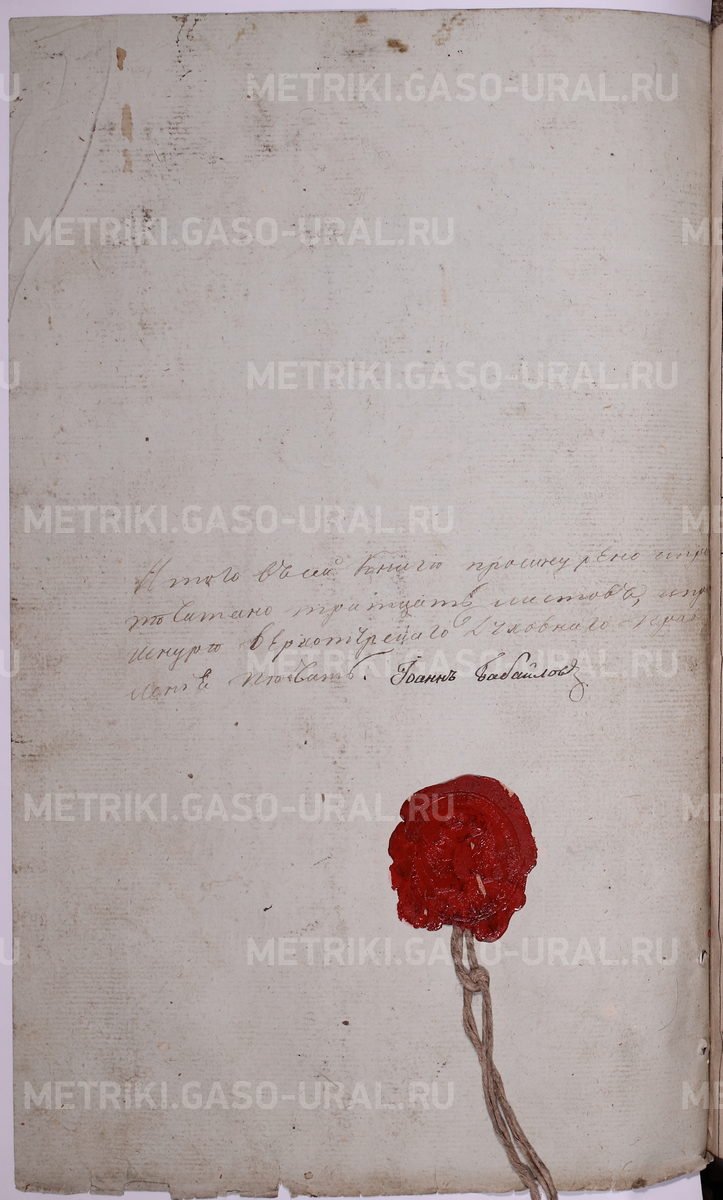 METRIKI.GASO-URAL.RU
METRIKI.GASO-URAL.RU
METRIKI.GASO-URAL.RU
METRIKI.GASO-URAL.RU
Итого въ сей книге прошнурено и при
печатано тритцать листовъ, и при
шнуру верхотурскаго духовнаго Прав
ленiя печать. Iоаннъ Бабайловъ
METRIKI.GASO-URAL.RU
METRIKI.GASO-URAL.RU
METRIKI.GASO-URAL.RU
METRIKI.GASO-URAL.RU